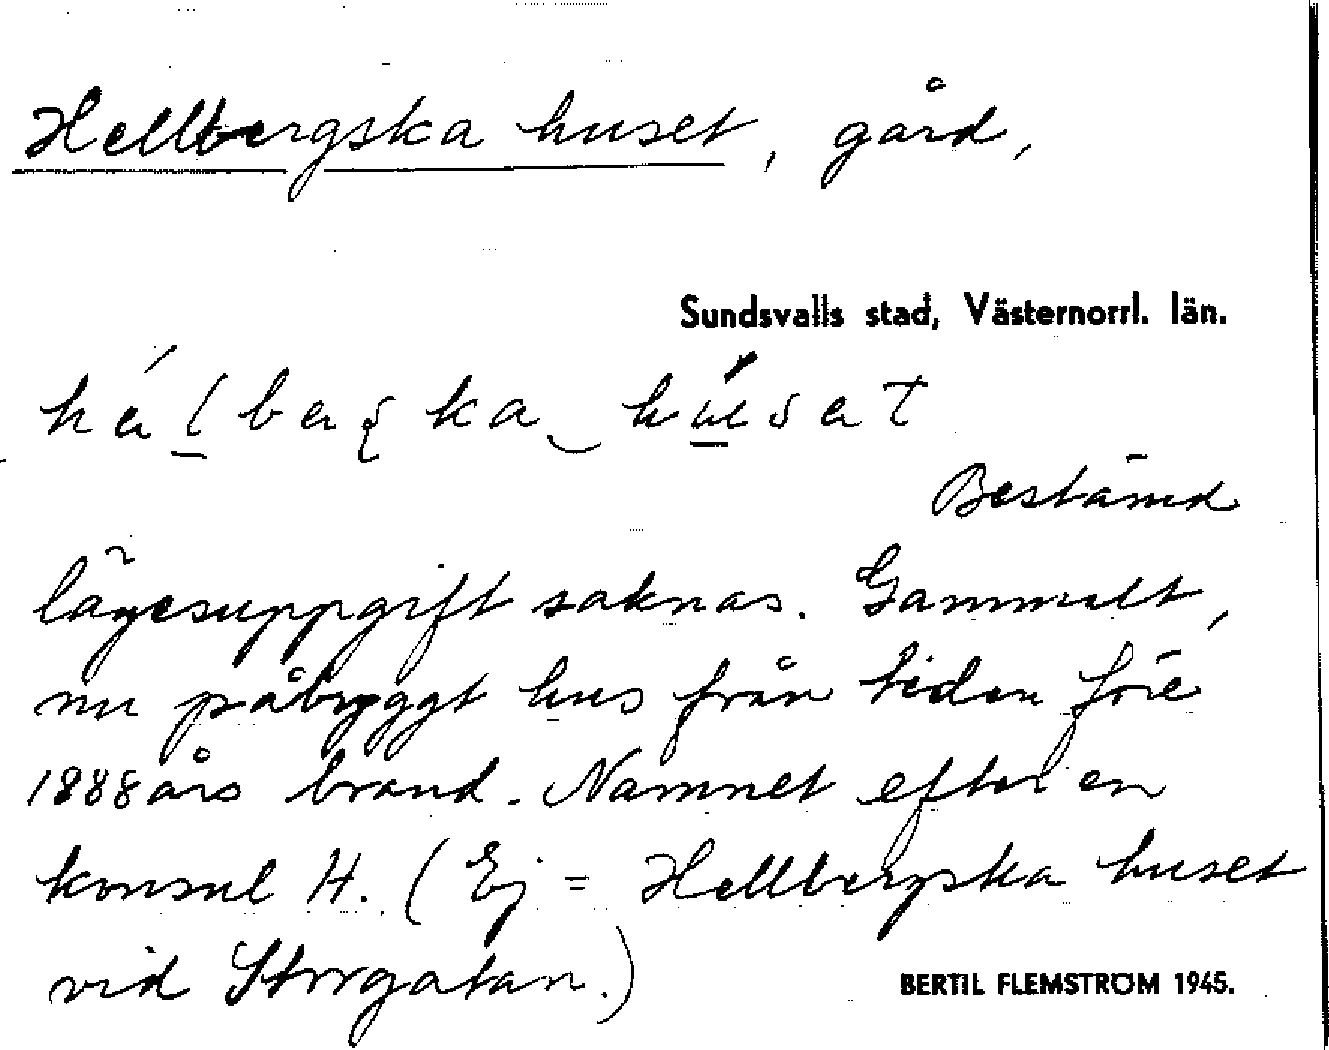 Hellbergska huset, gård,
Sundsvalls stad, Västernorrl. län.
Bestämd
lägesuppgift saknas. Gammalt,
nu påbyggt hus från tiden före
1888 års brand. Namnet efter en
konsul H. (Ej = Hellbergska huset
vid Storgatan.)
BERTIL FLEMSTRÖM 1945.